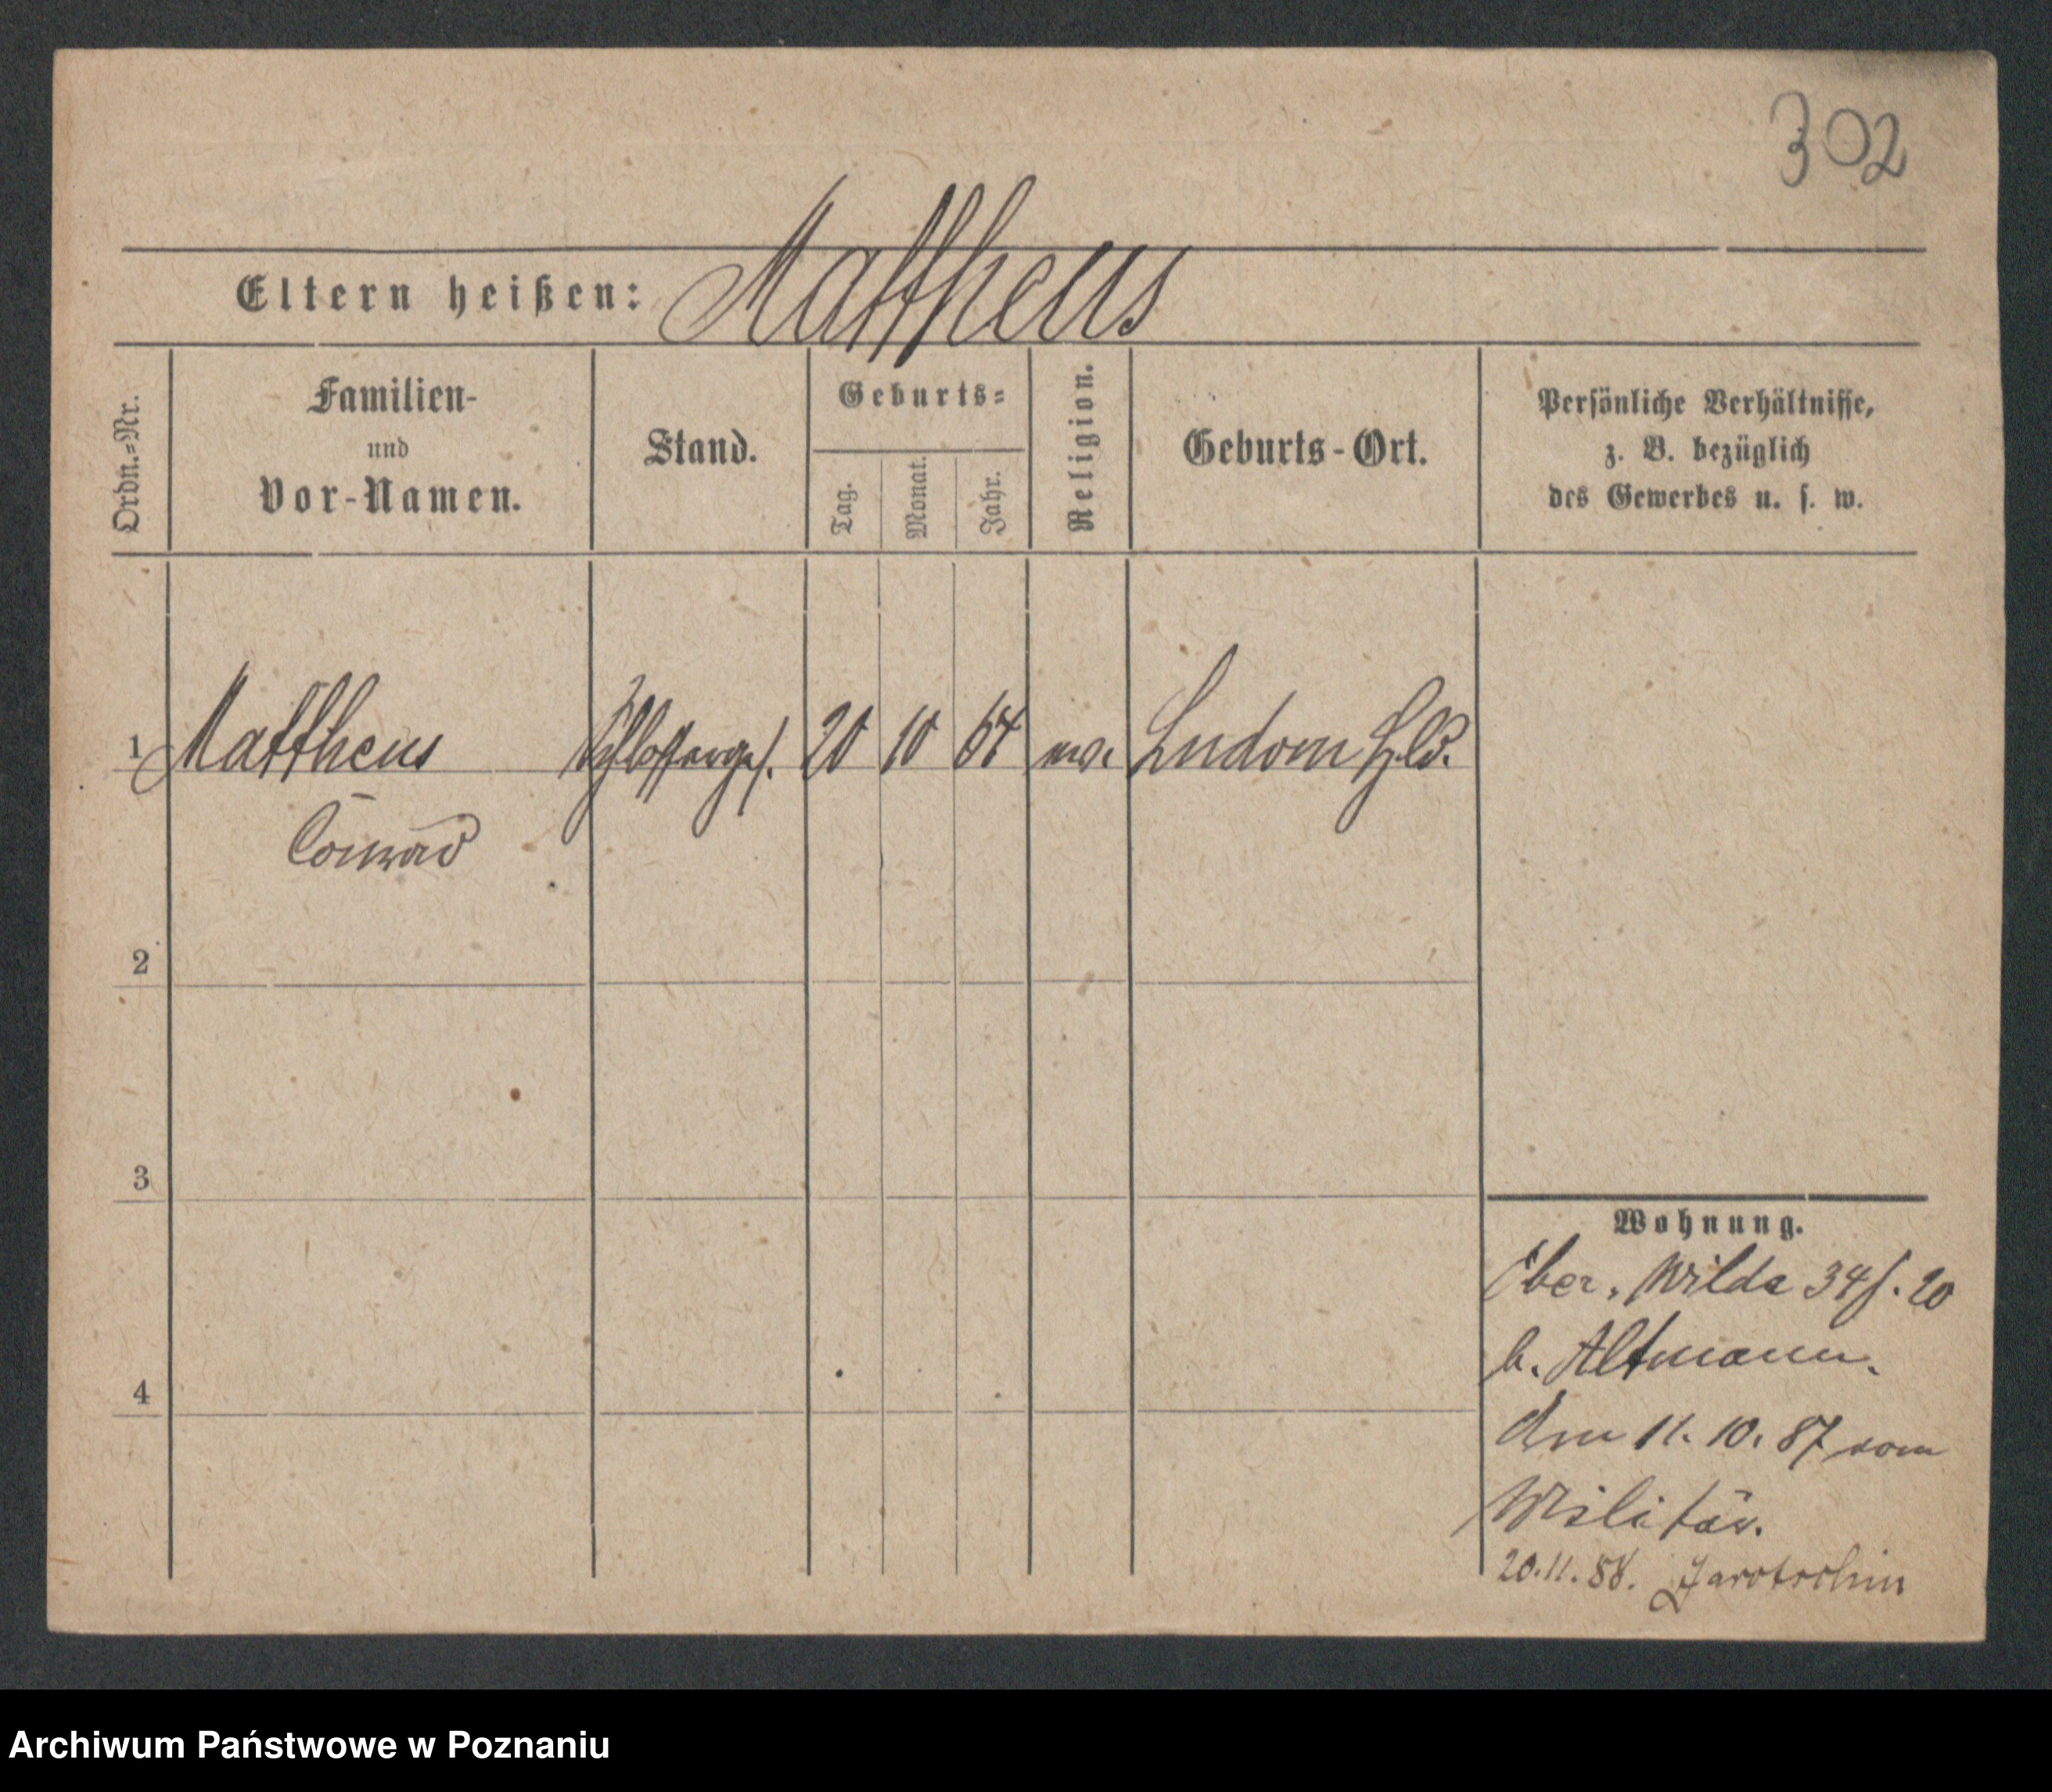 302
Eltern heißen: Mattheus
Ordn.-Nr.
Familien-
und
Vor-Namen.
Stand.
Geburts-
Tag.
Monat.
Jahr.
Religion.
Geburts-Ort.
Persönliche Verhältnisse,
z. B. bezüglich
des Gewerbes u. s. w.
1 Mattheus Schlosserges. 20 10 64 Ludom Hld.
Conrad
2
3
4
Wohnung.
Ober. Wilda 34 f. 20
b. Altmann.
Am 11. 10. 87 vom
Militär.
20.11.88. Jarotschin
Archiwum Państwowe w Poznaniu